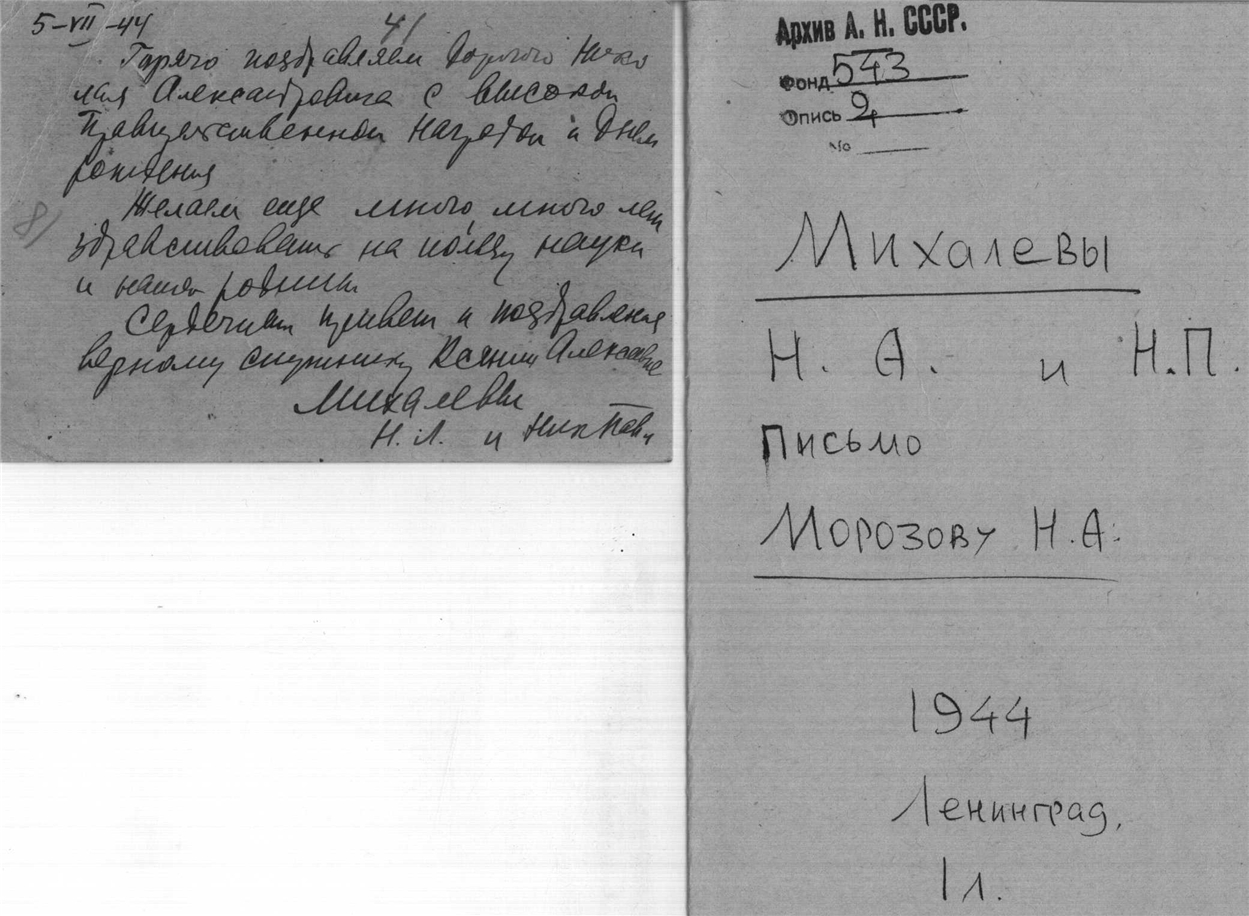 5-VII-44
4/
Горячо поздравляем дорогого Нико
лая Александровича с высокой
Правительственной наградой и Днем
рождения
8/
Желаем еще много, много лет
здравствовать на пользу науки
и нашей родины.
Сердечный привет и поздравления
верному спутнику Ксении Алексеевне
Михалевы
Н. А. и Ник Павл
Архив А. Н. СССР.
Фонд 543
Опись 2
№
Михалевы
Н. А. и Н.П.
Письмо
Морозову Н.А.
1944
Ленинград,
1 л.